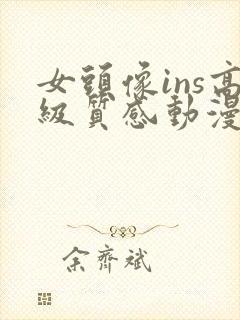 女頭像ins高
級質感動漫
余齊斌